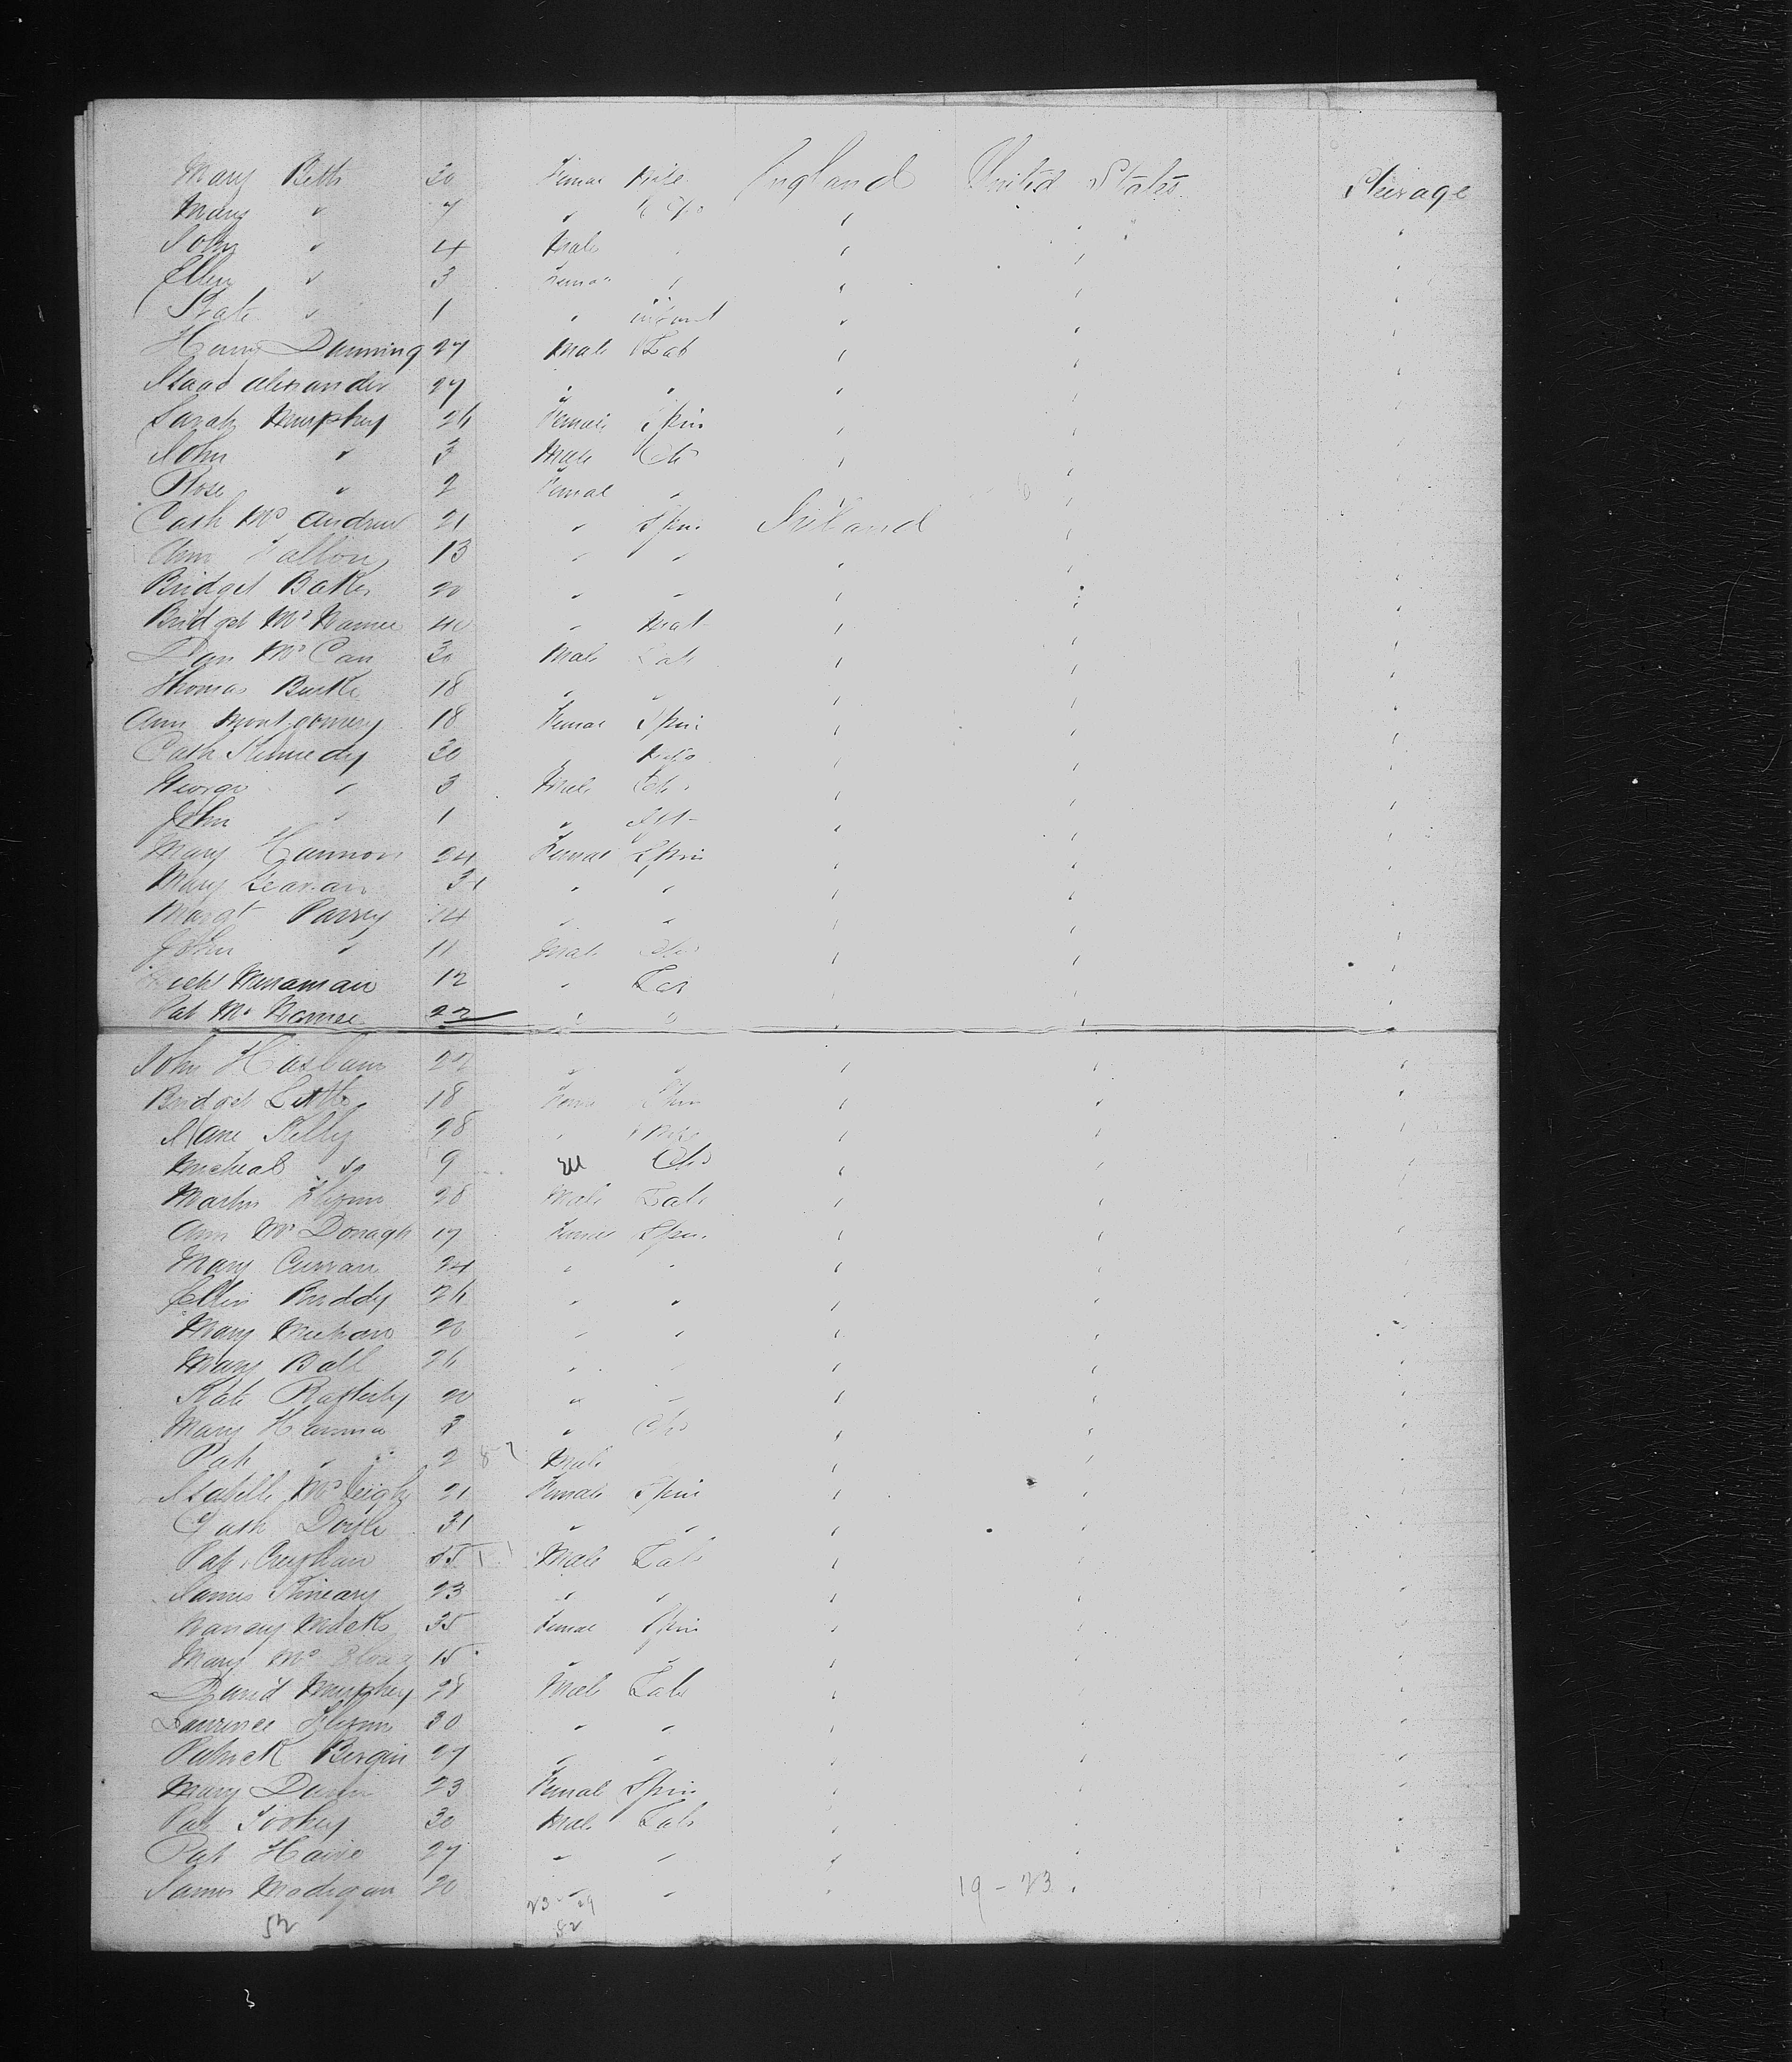 Mary Betts 30 Femal Wife England United States Steirage
Mary " 7 " Chd " " " "
John " 4 Male " " " "
Ellen " 3 Femal " " " "
Kate " 1 " infant " " "
Henry Dunning 27 Male Lab " " "
Isaac Alexander 27 " " " " "
Sarah Murphy 26 Female Spin " " "
John " 3 Male Ch " " "
Rose " 2 Femal " " " "
Cath Mc Andrew 21 " Spin Ireland " "
Ann Fallon 13 " " " " "
Bridget Baker 20 " " " " "
Bridget Mc Namee 40 " Mat " " "
Dan Mc Can 30 Male Lab " " "
Thomas Burke 18 " " " " "
Ann Montgomery 18 Femal Spin " " "
Cath Kennedy 30 " Wife " " "
George " 3 Male Ch " " "
John " 1 " Inft " " "
Mary Hannon 24 Femal Spin " " "
Mary 31 " " " " "
Margt Parry 14 " " " " "
John " 11 Male Chd " " "
12 " Lab " " "
Pat Mc Namee 22 " " " " "
John 22 " " " " "
Bridget Little 18 Fema Spin " " "
Jane Kelly 28 " Wife " " "
Micheal Do 9 M Chd " " "
Martin Flynn 28 Male Lab " " "
Ann Mc Donagh 17 Femal Spin " " "
Mary Curran 24 " " " " "
Ellen Priddy 26 " " " " "
Mary Meehan 20 " " " " "
Mary Ball 26 " " " " "
Kate Rafterty 20 " " " " "
Mary Hanna 3 " Chd " " "
Pat " 2 Male " " "
Isabella 21 Female Spin " " "
Cath Doyle 31 " " " " "
Pat Male Lab " " "
James Kineary 23 " " " " "
Nancy 35 Femal Spin " " "
Mary Mc 15 " " " " "
David Murphy 28 Male Lab " " "
Laurence Flynn 30 " " " " "
Patrick Bergin 27 " " " " "
Mary Dunn 23 Femal Spin " " "
Pat Toohey 30 Male Lab " " "
Pat 27 " " " " "
James Madigan 20 " " " 19 - 23 " "
52 23 - 29
52
3